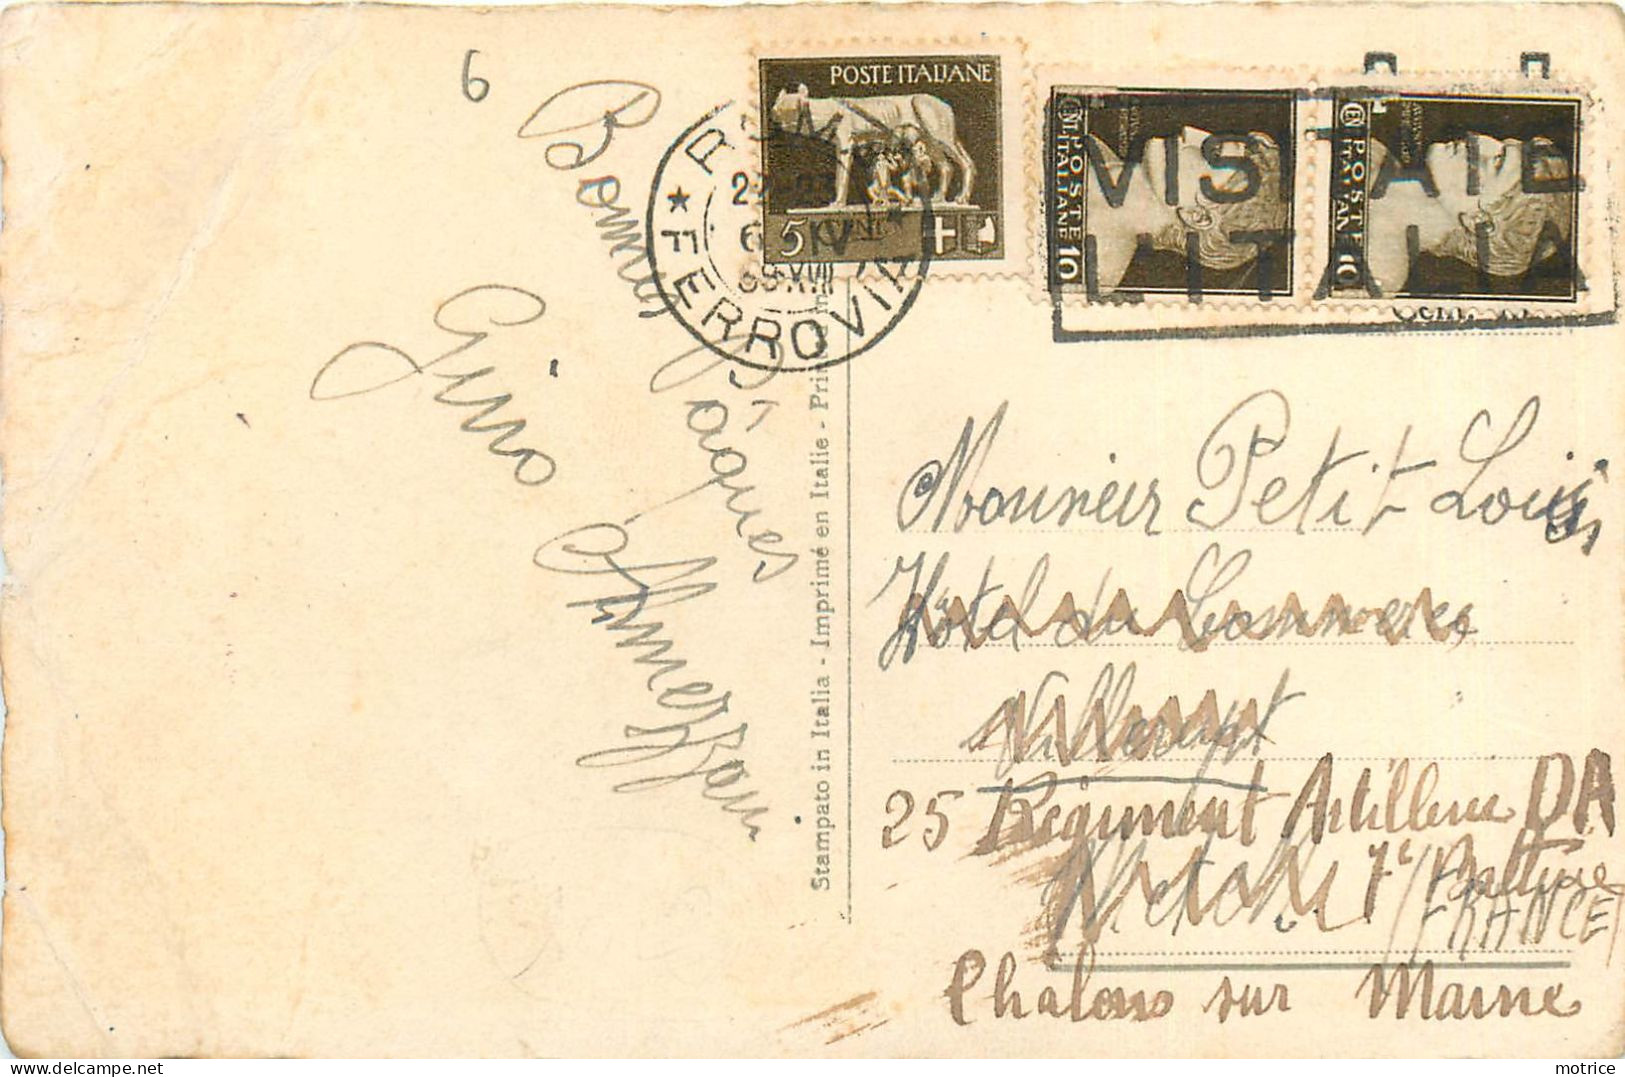 6
POSTE ITALIANE
5 CENT.
ROMA
6 IV
39·XVII
★ FERROVIA
POSTE ITALIANE 10
POSTE ITALIANE 10
VISITATE
L'ITALIA
Bonnes
Pâques
Gino
Stampato in Italia - Imprimé en Italie - Prin
Monsieur Petit Louis
Hôtel du Commerce
Villerupt
25 Régiment Artillerie DA
7e Batterie
FRANCE
Chalons sur Marne
motrice